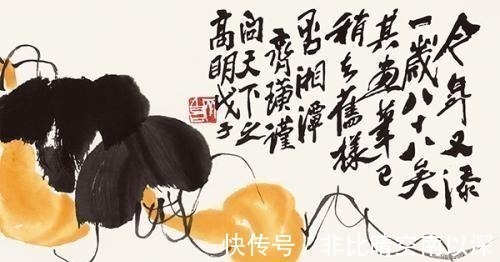 今年又添
一歲八十八矣
其畫筆已
稍去舊樣
否湘潭
齊璜謹
問天下之
高明戊子
快传号 / 非比晴空南以深